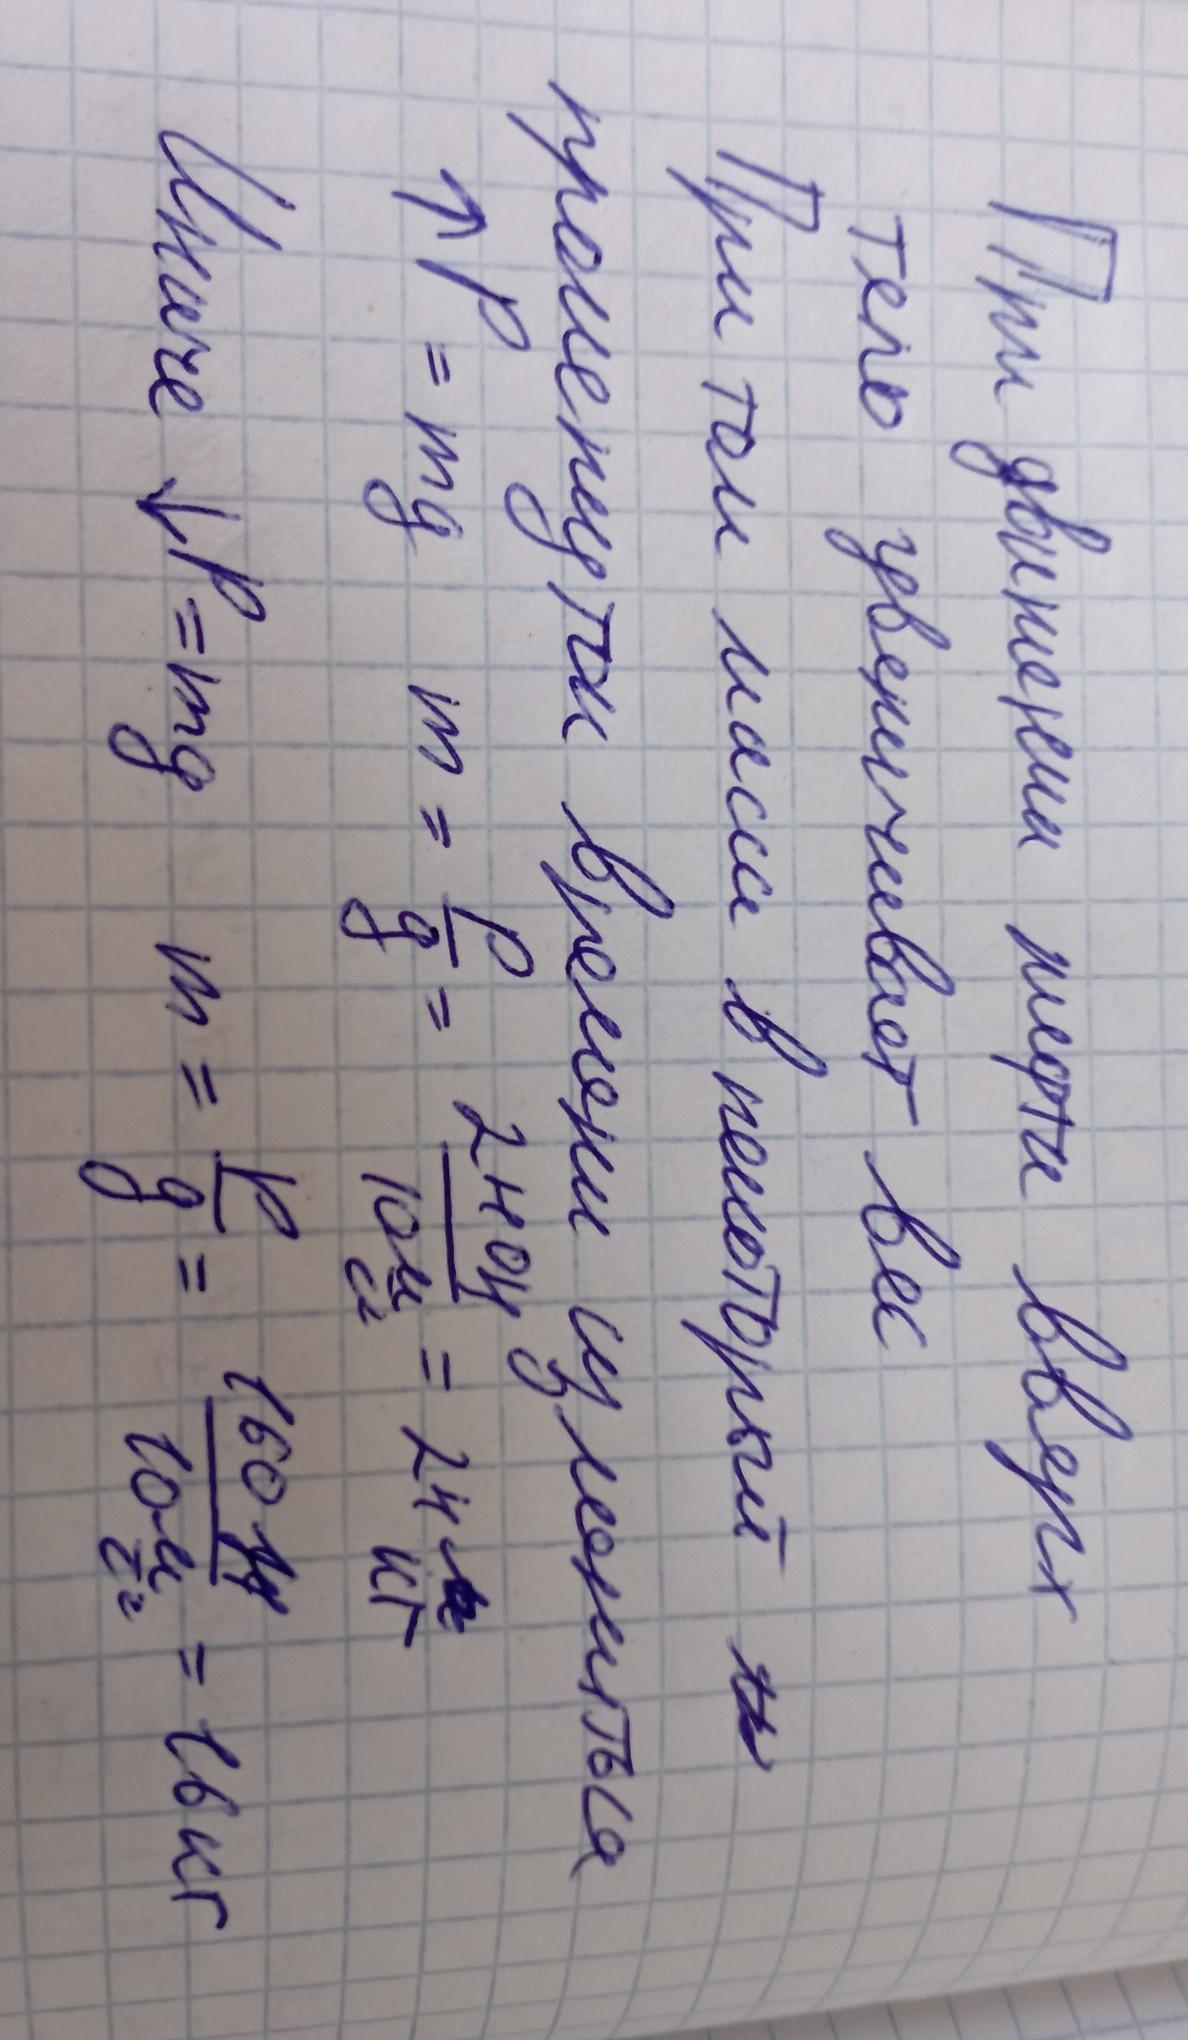 При движении лифта вверх
тело увеличивает вес
При том масса в некоторый
промежуток времени измениться
↑P = mg m = P/g = 240Н/10м/с² = 24 кг
Иначе ↓P = mg m = P/g = 160Н/10м/с² = 16 кг